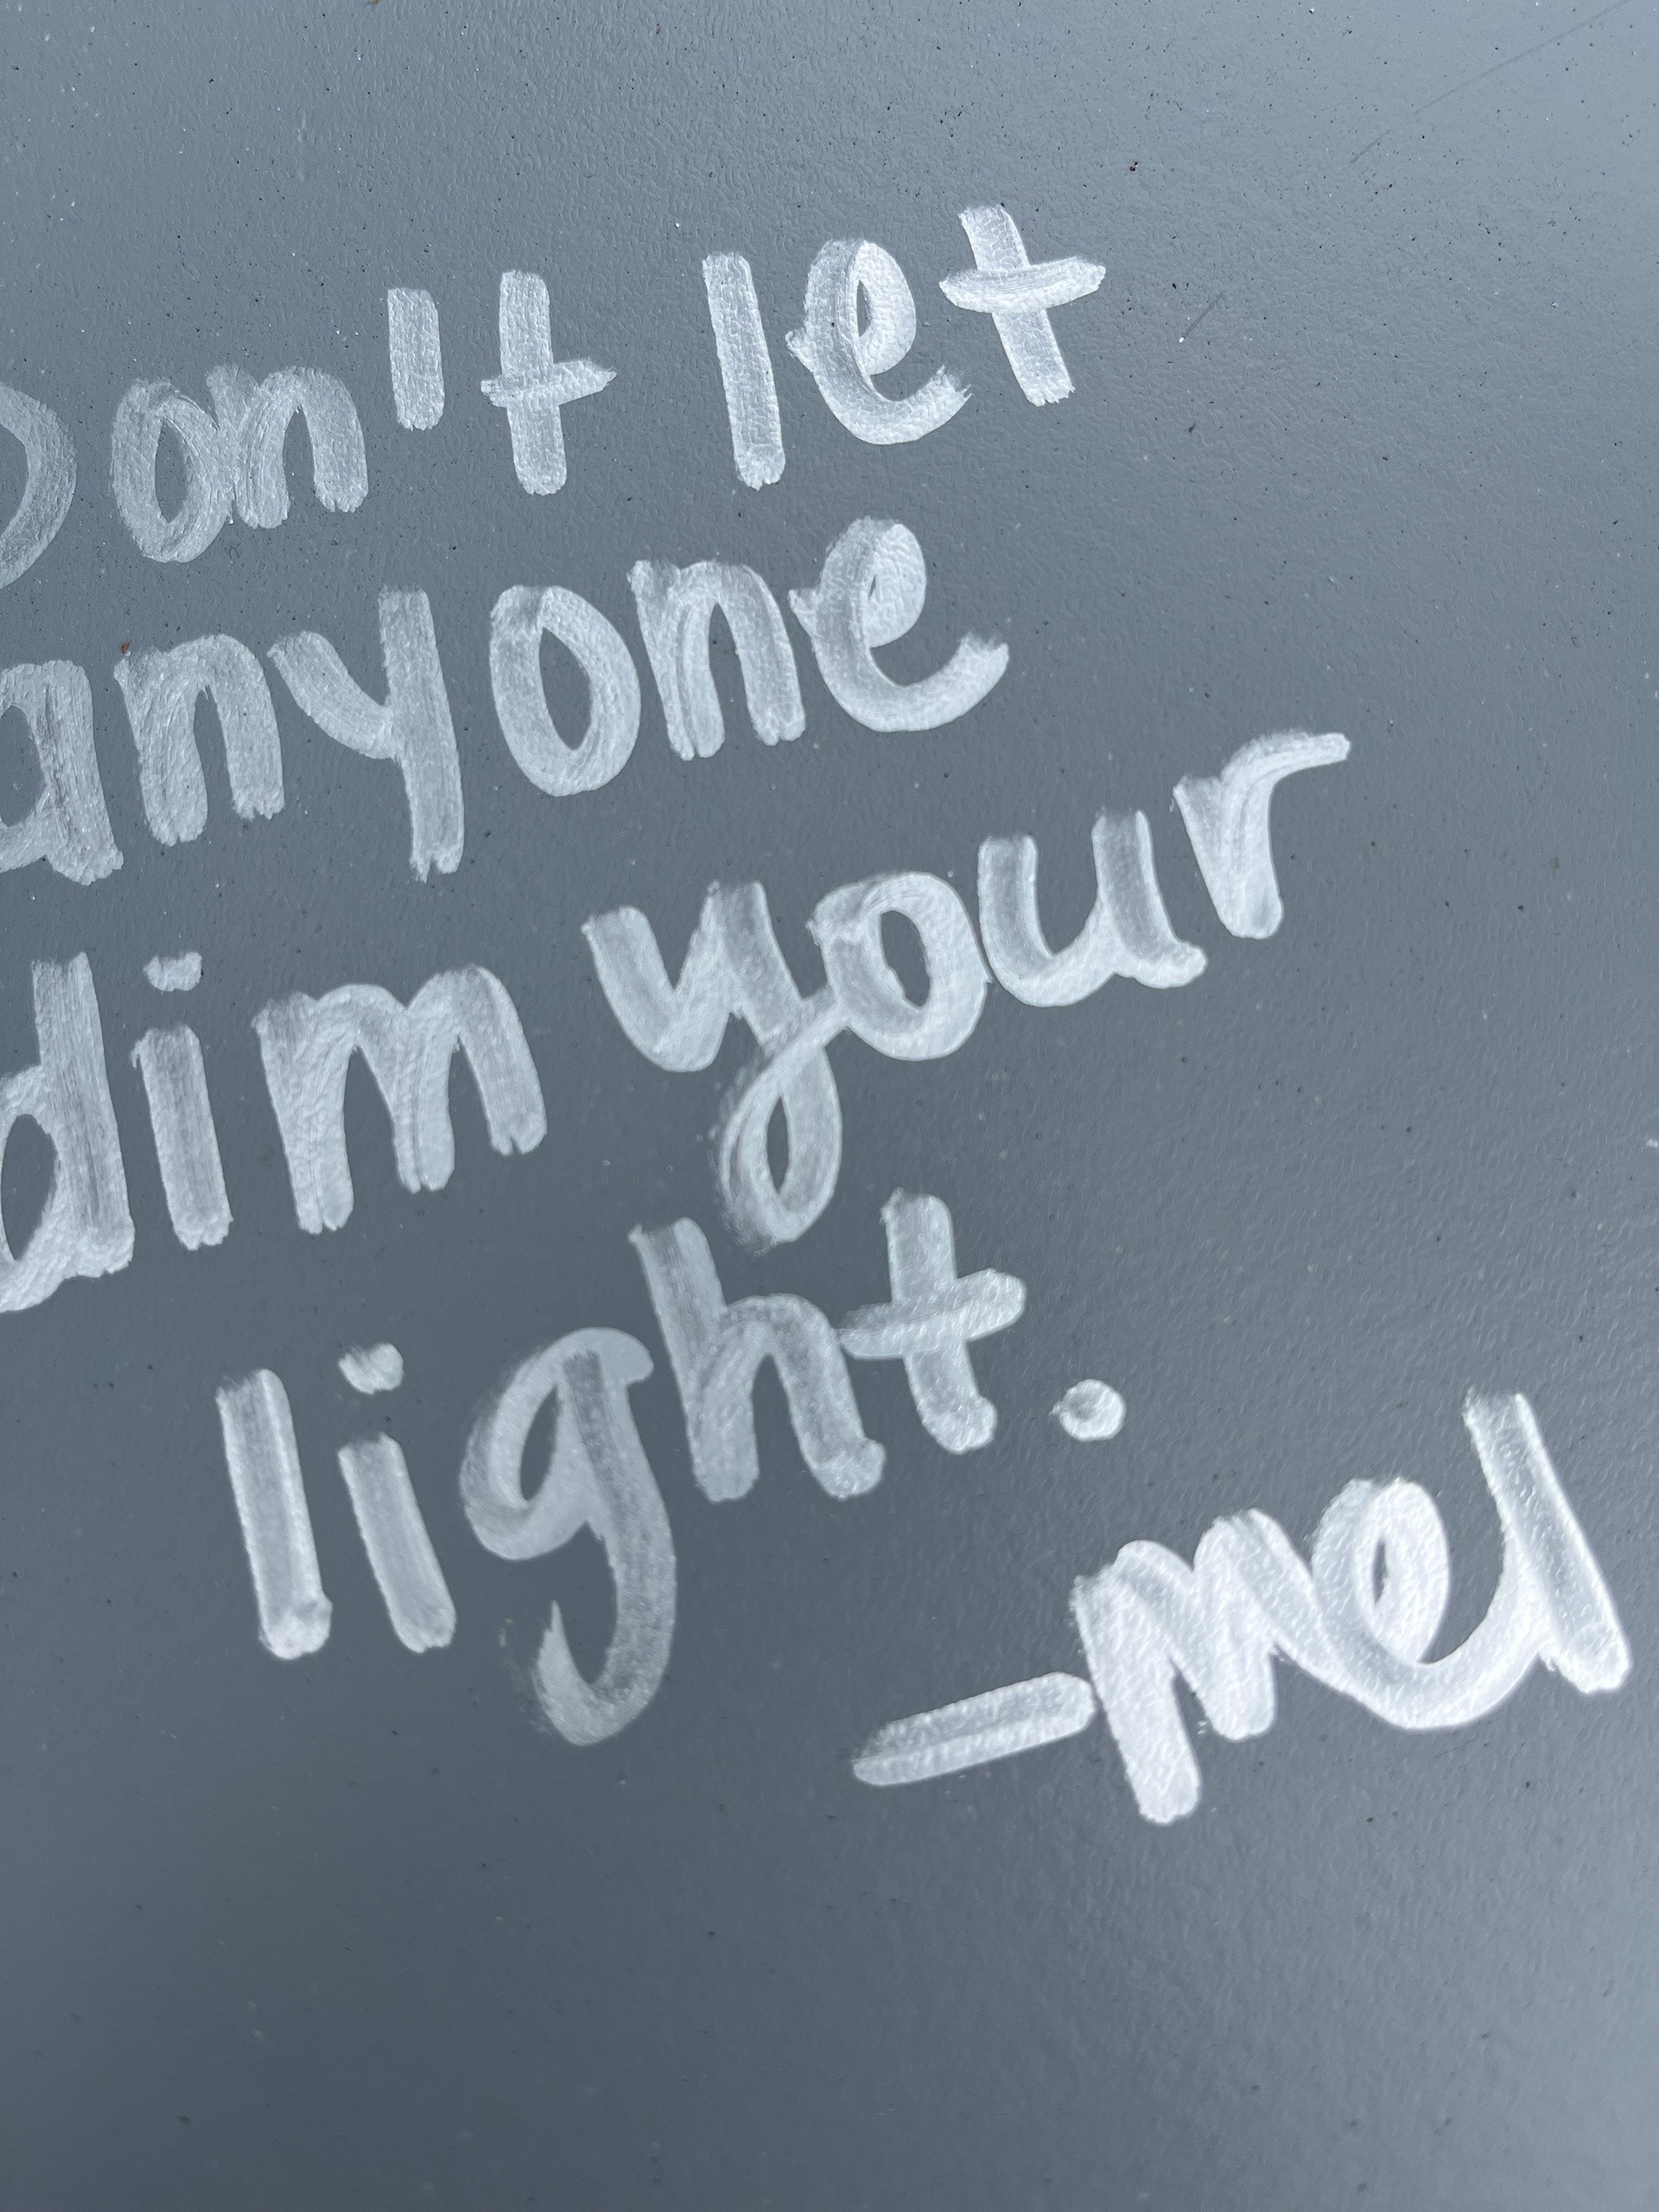 Don't let
anyone
dim your
light.
-mel